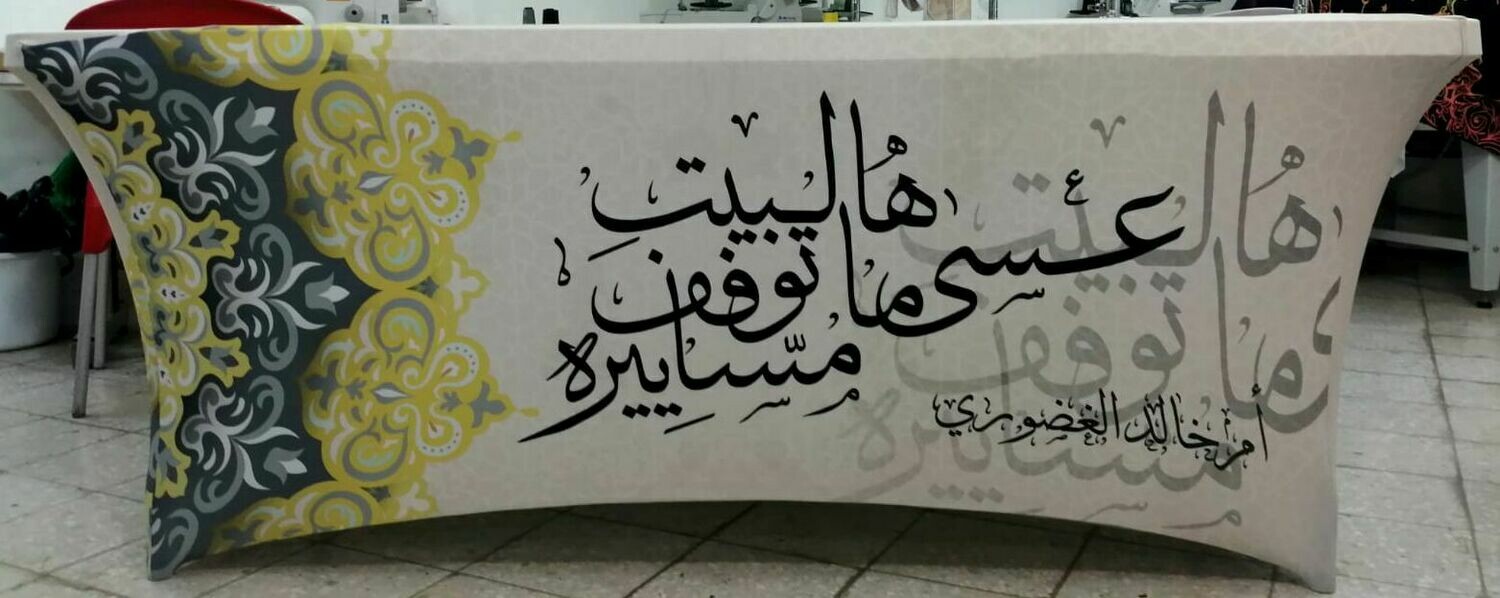 عسى هالبيت
ما توقف
مسّاييره
أم خالد الغضوري